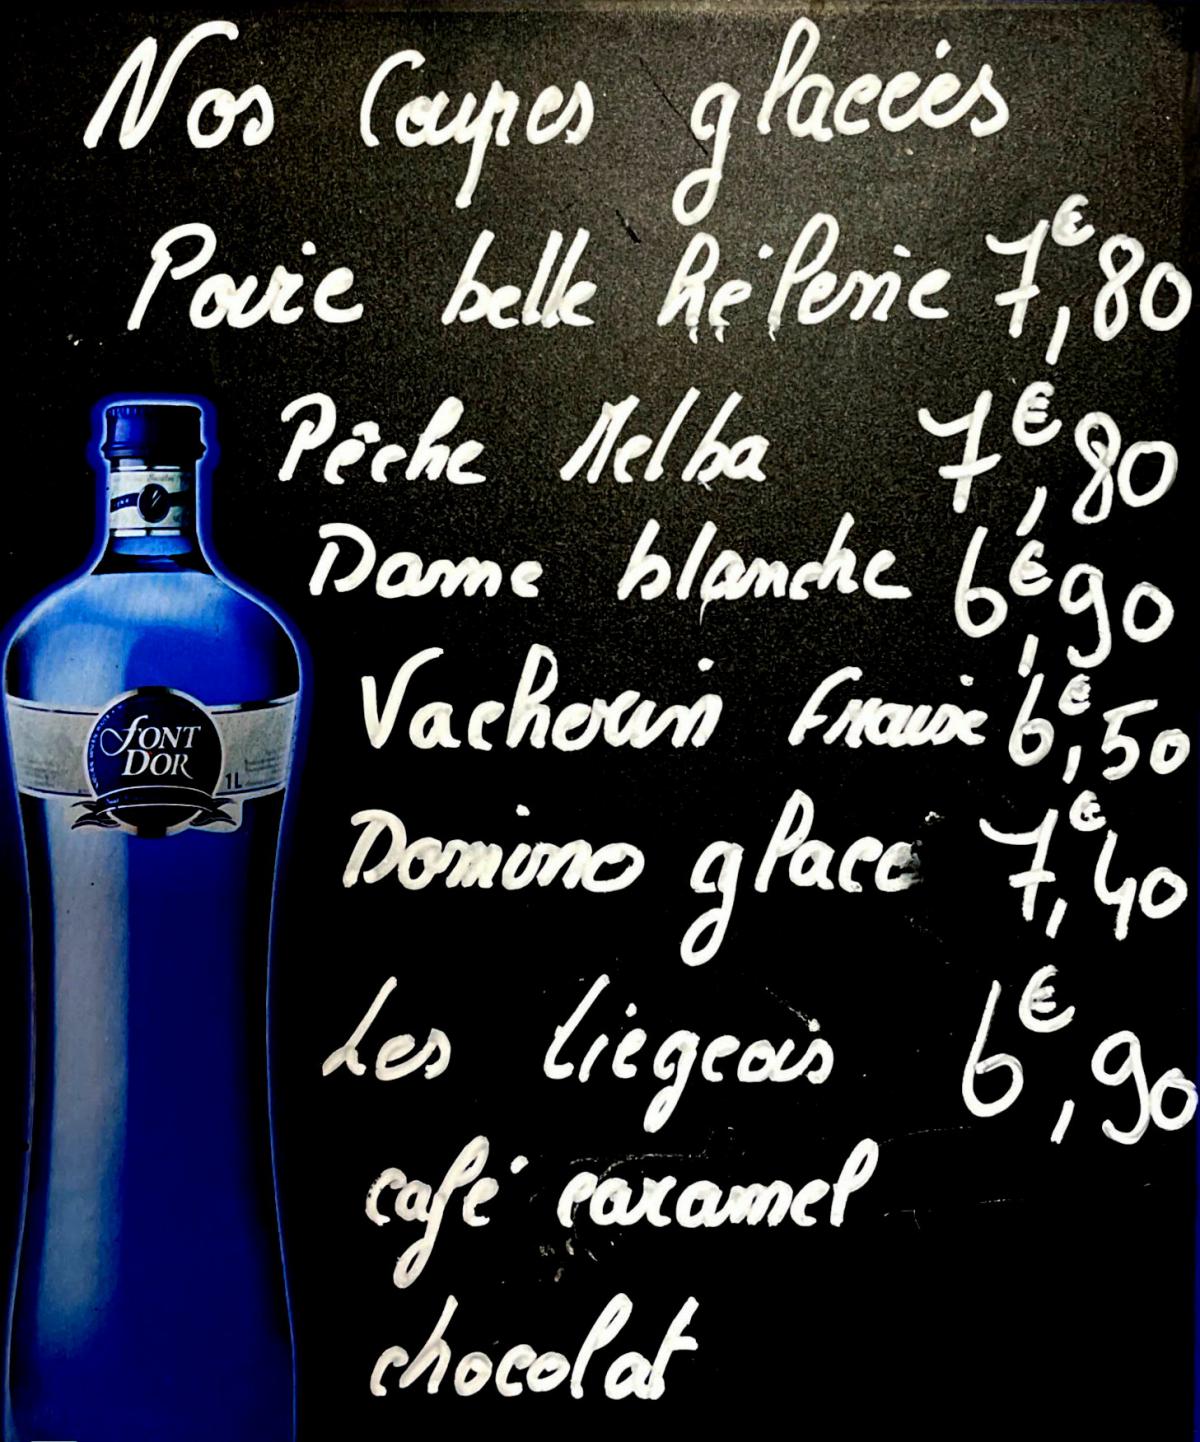 Nos Coupes glacées
Poire belle hélène 7€,80
Pêche Melba 7€,80
Dame blanche 6€,90
Vacherin Fraise 6€,50
FONT
D'OR
1L
Domino glace 7€,40
Les liégeois 6€,90
café caramel
chocolat